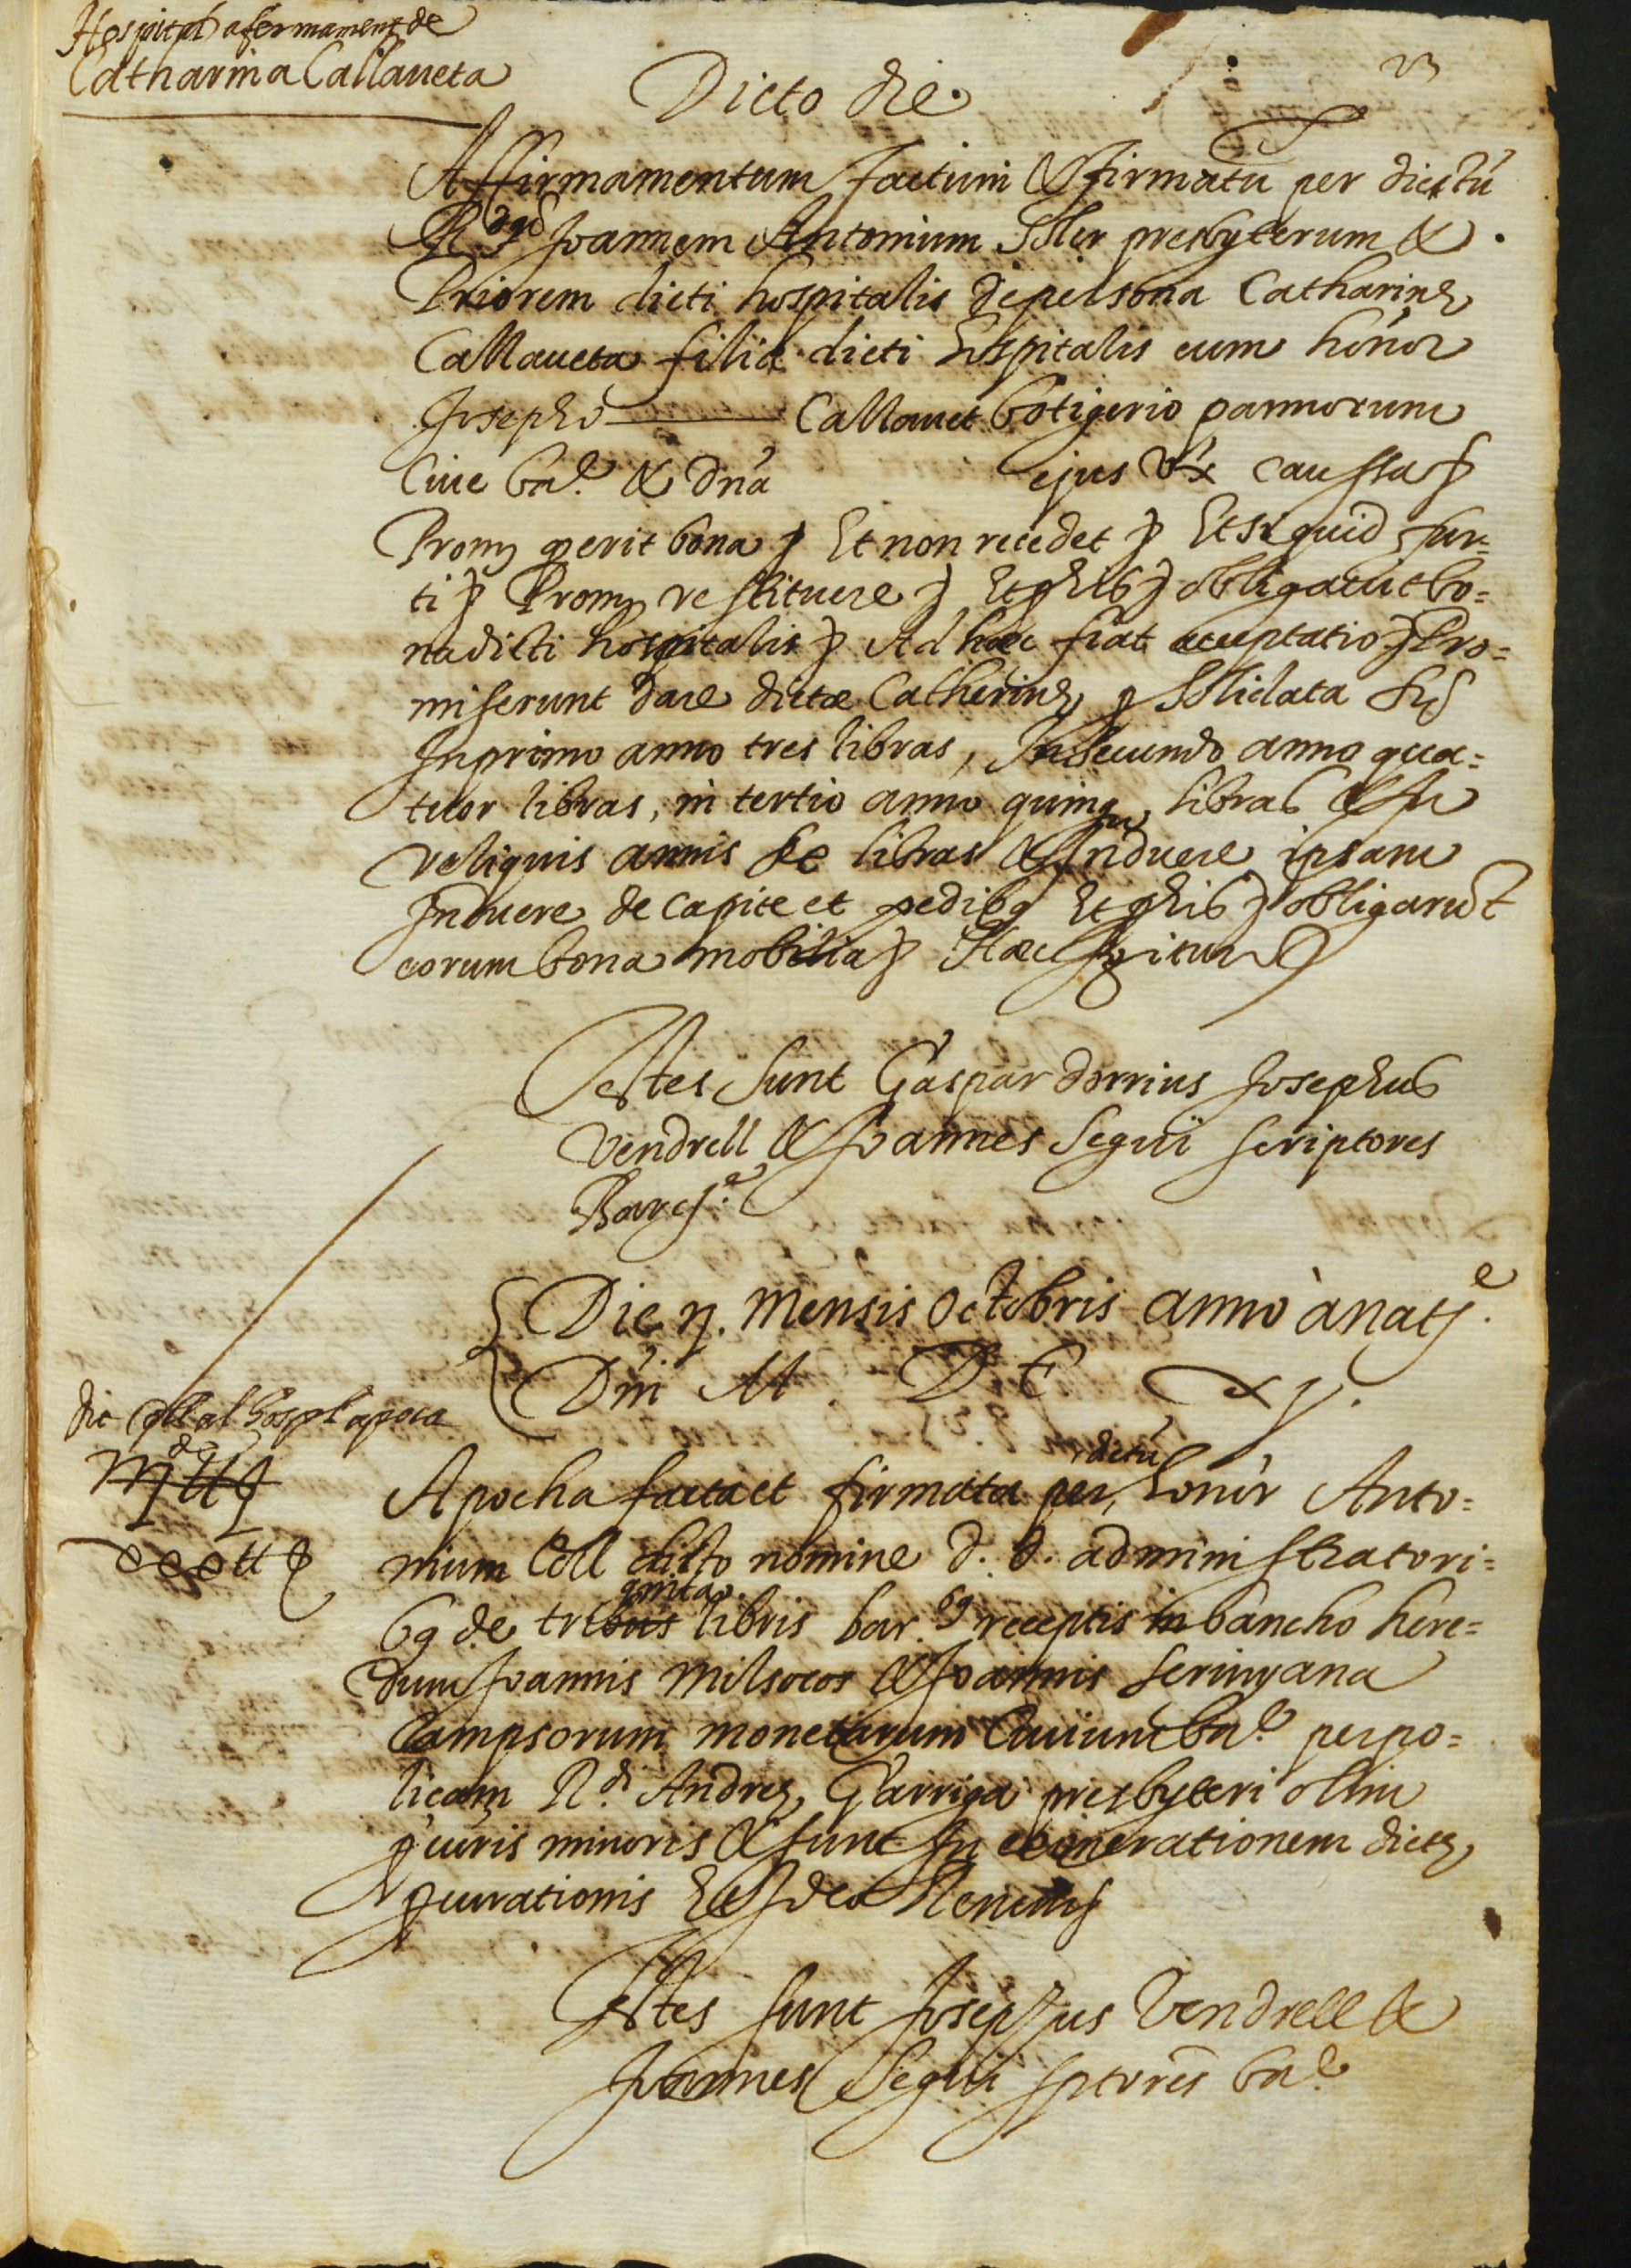 Hospital afermament de
Catharina Callaueta
23
Dicto die
Affirmamentum factum & firmatũ per dictũ
R.dum Joannem Antonium Soler presbyterum &
Priorem dicti hospitalis de persona Catharinę
Callaueta filiæ dicti hospitalis cum honor
Josepho Callauet botigerio pannorum
Ciue ba.e & dña ejus vx caussa
Prom ꝙ erit bona Et non recedet Et si quid fur-
ti Prom restituere obligauit bo=
na dicti hospitalis Ad hæc fiat acceptatio Pro=
miserunt dare dictæ Catherinę ꝓ Solidata
In primo anno tres libras, In secundo anno qua=
tuor libras, in tertio anno quinq, libras & In
reliquis annis libras & Induere ipsam
Induere de capite et pedibq obligarũt
eorum bona mobilia Hæc igitur
Testes sunt Gaspar dorrius Josephus
Vendrell & Joannes Segui scriptores
Barcᵉ.
Die n. Mensis Octobris anno ànatᵉ.
Dñi M. D C xv.
die coll al hospl apoca
Apocha facta et firmata per, dictũ honor Anto=
nium Coll dicto nomine d. d. administratori=
bq de tribus libris bar. bq receptis in bancho here=
dum Joannis Milsocos & Joannis serinyana
Campsorum monetarum Ciuium ba.e per po=
licam R.di Andreę Garriga presbyteri olim
ꝓcuris minoris & sunt In exonerationem dictę
ꝓcurationis Et Ideo Renuns
Testes sunt Josephus Vendrell &
Joannes Segui sptores ba.e